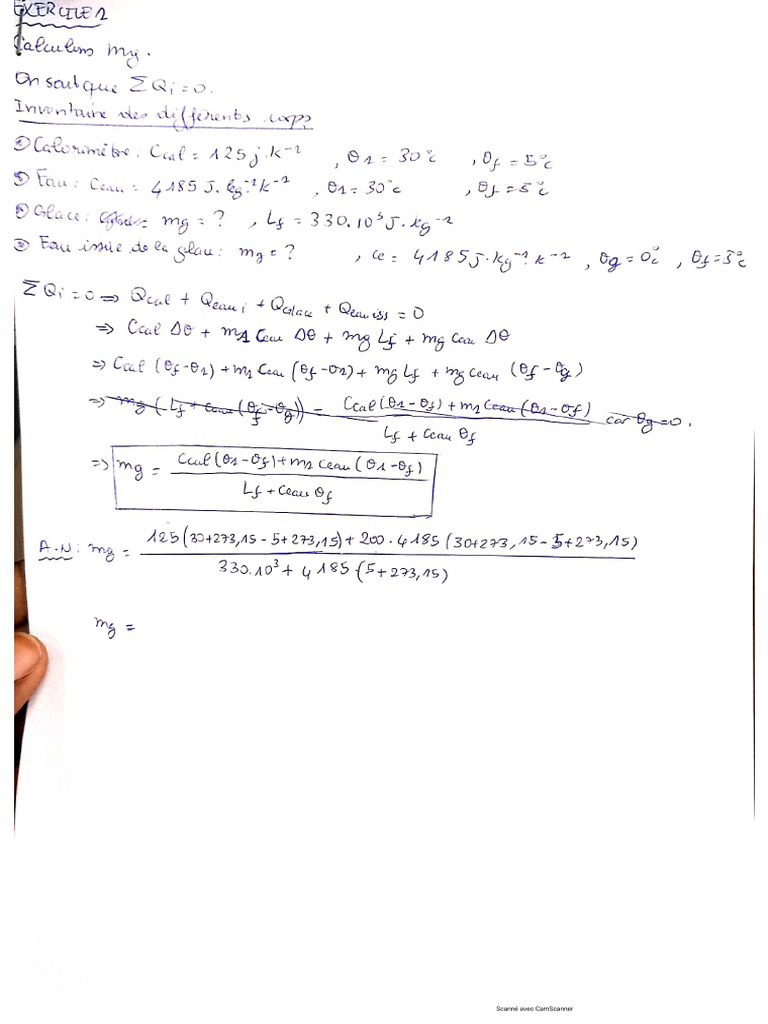 EXERCICE 1
Calculons mg.
On sait que ΣQi = 0.
Inventaire des différents corps
① Calorimètre : Ccal = 125 j.k⁻¹ , θ1 = 30°c , θf = 5°c
② Eau : Ceau = 4185 J.kg⁻¹k⁻¹ , θ1 = 30°c , θf = 5°c
③ Glace : mg = ? , Lf = 330.10³ J.kg⁻¹
④ Eau issue de la glace : mg = ? , ce = 4185 J.kg⁻¹.k⁻¹ , θg = 0°c , θf = 5°c
ΣQi = 0 ⇒ Qcal + Qeau i + QGlace + Qeau iss = 0
⇒ Ccal Δθ + m1 Ceau Δθ + mg Lf + mg Ceau Δθ
⇒ Ccal (θf - θ1) + m1 Ceau (θf - θ1) + mg Lf + mg Ceau (θf - θg)
⇒ mg (Lf + Ceau (θf - θg)) = Ccal (θ1 - θf) + m1 Ceau (θ1 - θf) car θg = 0.
Lf + Ceau θf
⇒ mg = Ccal (θ1 - θf) + m1 Ceau (θ1 - θf)
Lf + Ceau θf
A.N : mg = 125 (30+273,15 - 5+273,15) + 200 . 4185 (30+273,15 - 5+273,15)
330.10³ + 4185 (5+273,15)
mg =
Scanné avec CamScanner